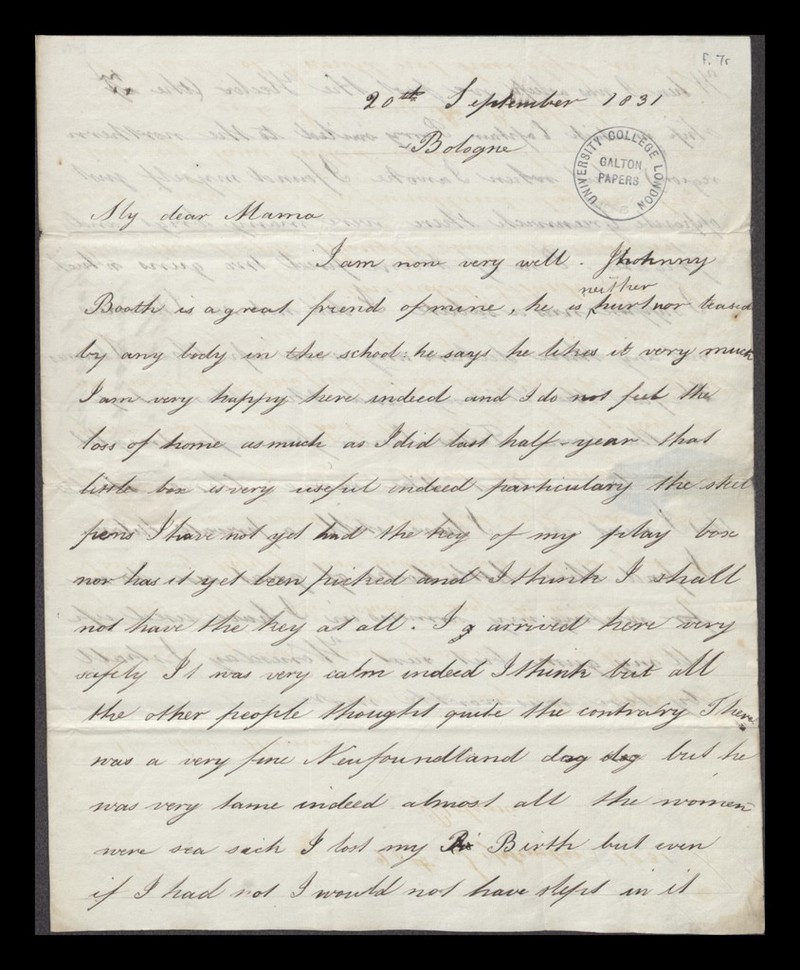 f. 7r
20th September 1831
Bologne
UNIVERSITY COLLEGE LONDON
GALTON
PAPERS
My dear Mama
I am now very well. Jhohnny
neither
Booth is a great friend of mine, he is hurt nor teased
by any body in the school: he says he likes it very much
I am very happy here indeed and I do not feel the
loss of home as much as I did last half-year that
little box is very useful indeed particulary the steel
pens I have not yet had the key of my play box
nor has it yet been picked and I think I shall
not have the key at all. I arrived here very
safely It was very calm indeed I think but all
the other people thought quite the contralry There
was a very fine Newfoundland dog dog but he
was very tame indeed almost all the women
were sea sick I lost my Bi Birth but even
if I had not I would not have slept in it